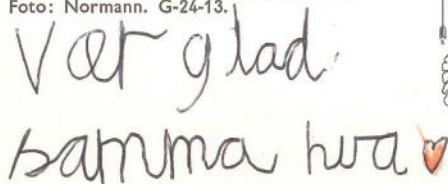 Foto: Normann. G-24-13.
Vær glad
samma hva